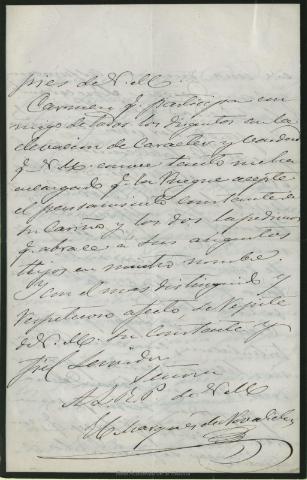 pies de V. M.
Carmen q. participa con
migo de todos los disgustos en la
elevacion de caracter y
q. V. M. conoce tanto me ha
encargado q. la ruegue acepte
el pensamiento constante de
su cariño y los dos la pedimos
q. abrace a sus augustos
Hijos en nuestro nombre.
Y con el mas distinguido y
respetuoso afecto, se repite
de V. M. su constante y
fiel servidor
Señora
A. L. R. P. de V. M.
El Marques de Novaliches